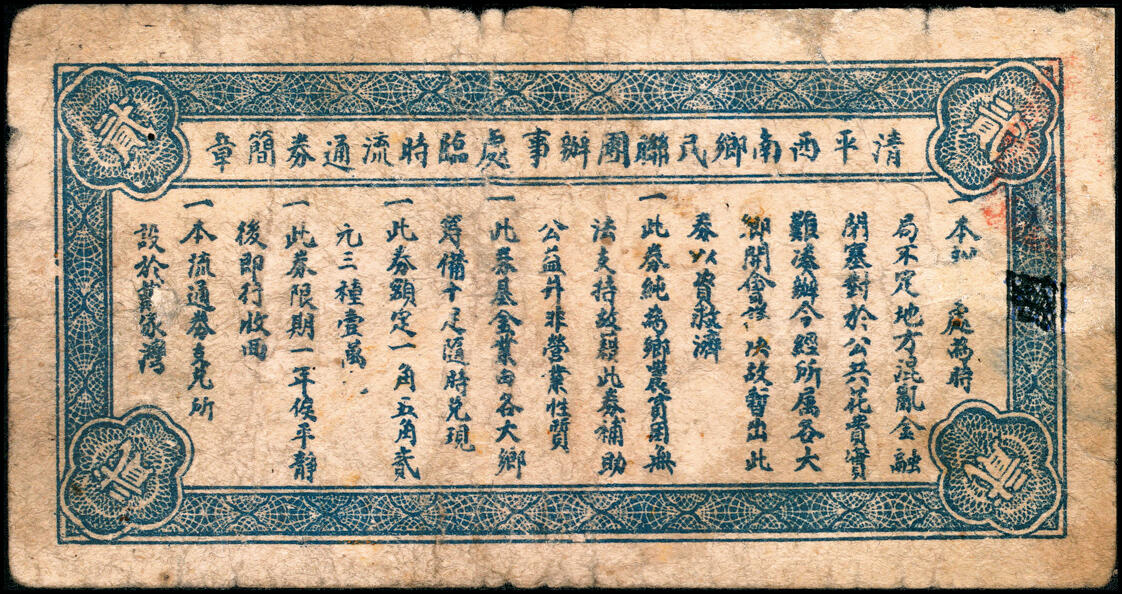 清平西南鄉民聯團辦事處臨時流通券簡章
一本 處為時
局不定地方混亂金融
閉塞對於公共花費實
難湊辦今經所属各大
鄉開會議决故暫出此
券以資救濟
一此券純為鄉農實困無
法支持故設此券補助
公益并非營業性質
一此券基金業由各大鄉
籌備十足隨時兌現
一此券額定一角五角貳
元三種壹萬
一此券限期一年俟平靜
後即行收回
一本流通券支兌所
設於萬家灣